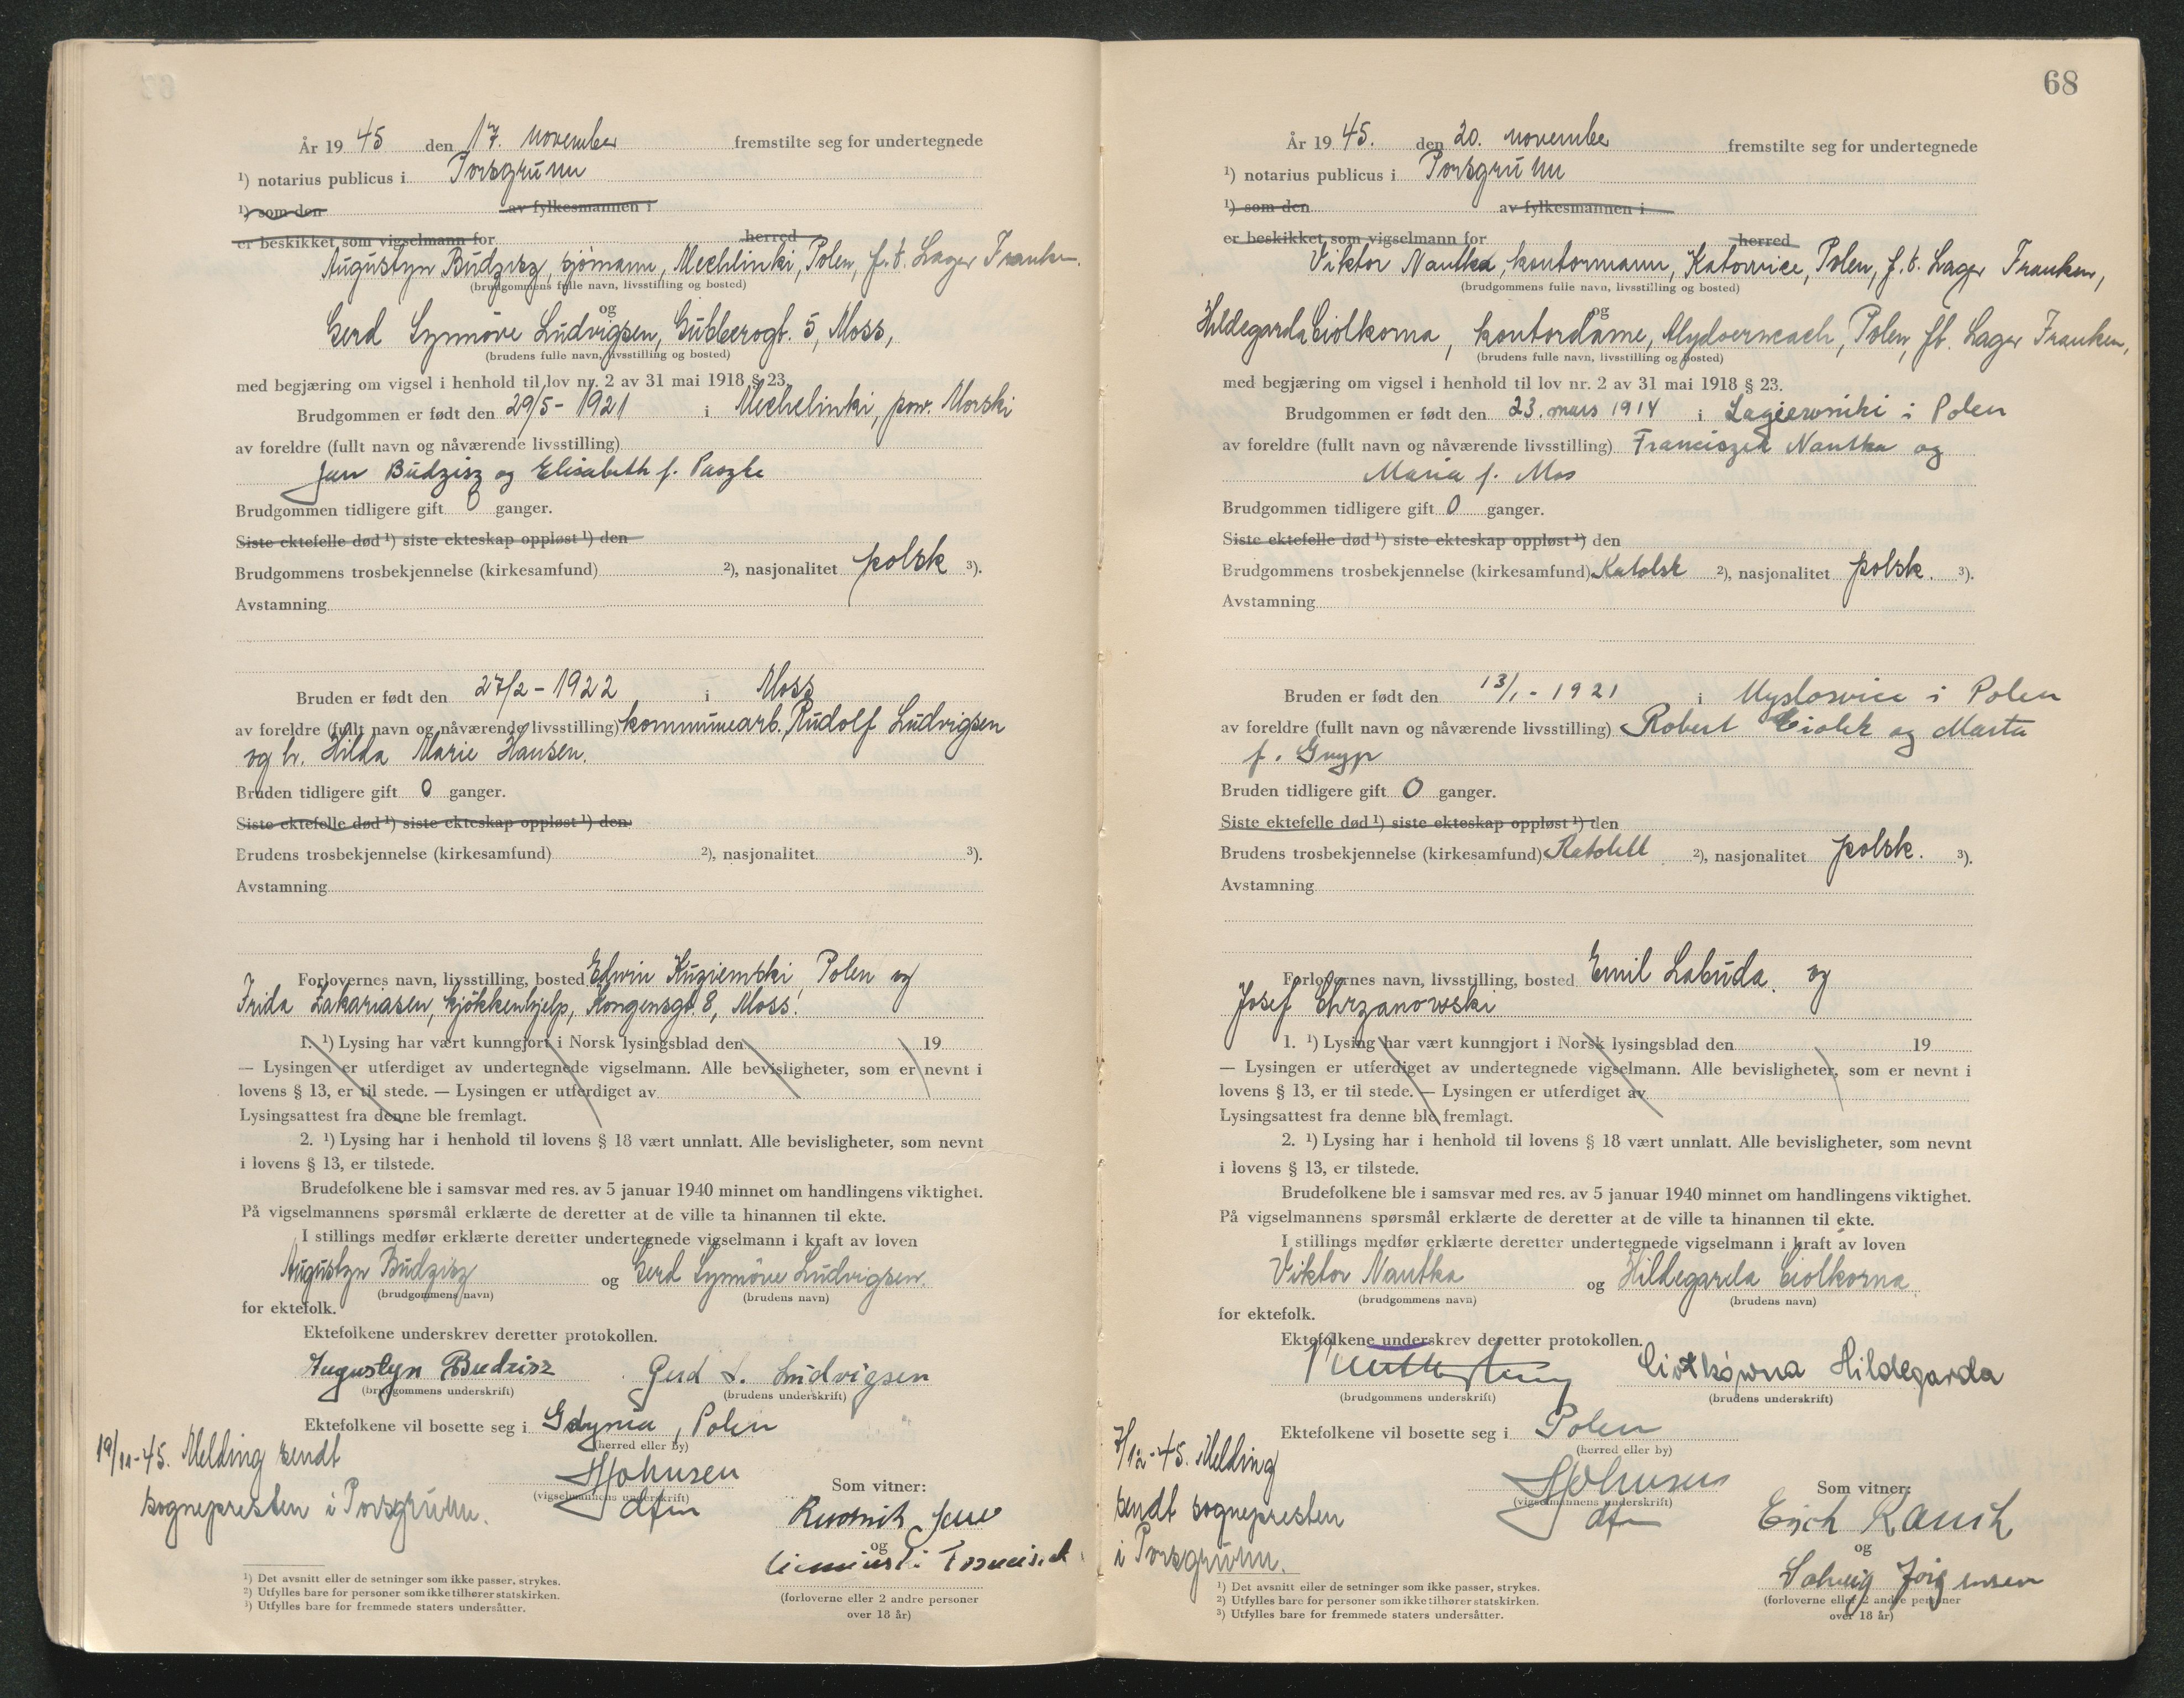 År 1945 den 17. november fremstilte seg for undertegnede
¹) notarius publicus i Porsgrunn
¹) som den av fylkesmannen i
er beskikket som vigselmann for herred
Augustyn Budzisz, sjömann, Mechlinki, Polen, f.t. Lager Franken.
(brudgommens fulle navn, livsstilling og bosted)
og
Gerd Synnöve Ludvigsen, Gubberogt. 5, Moss,
(brudens fulle navn, livsstilling og bosted)
med begjæring om vigsel i henhold til lov nr. 2 av 31 mai 1918 § 23.
Brudgommen er født den 29/5 - 1921 i Mechelinki, pow. Morski
av foreldre (fullt navn og nåværende livsstilling)
Jan Budzisz og Elisabeth f. Paszke
Brudgommen tidligere gift 0 ganger.
Siste ektefelle død ¹) siste ekteskap oppløst ¹) den
Brudgommens trosbekjennelse (kirkesamfund) ²), nasjonalitet polsk ³).
Avstamning
Bruden er født den 27/2 - 1922 i Moss
av foreldre (fullt navn og nåværende livsstilling) kommunearb. Rudolf Ludvigsen
og h. Hilda Marie Hansen.
Bruden tidligere gift 0 ganger.
Siste ektefelle død ¹) siste ekteskap oppløst ¹) den
Brudens trosbekjennelse (kirkesamfund) ²), nasjonalitet ³).
Avstamning
Forlovernes navn, livsstilling, bosted Edwin Kuziemski, Polen og
Frida Zakariasen, kjökkenhjelp, Kongensgt 8, Moss.
1. ¹) Lysing har vært kunngjort i Norsk lysingsblad den 19
— Lysingen er utferdiget av undertegnede vigselmann. Alle bevisligheter, som er nevnt i
lovens § 13, er til stede. — Lysingen er utferdiget av
Lysingsattest fra denne ble fremlagt.
2. ¹) Lysing har i henhold til lovens § 18 vært unnlatt. Alle bevisligheter, som nevnt
i lovens § 13, er tilstede.
Brudefolkene ble i samsvar med res. av 5 januar 1940 minnet om handlingens viktighet.
På vigselmannens spørsmål erklærte de deretter at de ville ta hinannen til ekte.
I stillings medfør erklærte deretter undertegnede vigselmann i kraft av loven
Augustyn Budzisz og Gerd Synnöve Ludvigsen.
(brudgommens navn) (brudens navn)
for ektefolk.
Ektefolkene underskrev deretter protokollen.
Augustyn Budzisz Gerd S. Ludvigsen
(brudgommens underskrift) (brudens underskrift)
Ektefolkene vil bosette seg i Gdynia, Polen
(herred eller by)
19/11-45. Melding sendt
sognepresten i Porsgrunn.
HJohnsen
(vigselmannens underskrift)
dfm
Som vitner:
og
(forloverne eller 2 andre personer
over 18 år)
¹) Det avsnitt eller de setninger som ikke passer, strykes.
²) Utfylles bare for personer som ikke tilhører statskirken.
³) Utfylles bare for fremmede staters undersåtter.
68
År 1945. den 20. november fremstilte seg for undertegnede
¹) notarius publicus i Porsgrunn
¹) som den av fylkesmannen i
er beskikket som vigselmann for herred
Viktor Nautka, kontormann, Katowice, Polen, f.t. Lager Franken,
(brudgommens fulle navn, livsstilling og bosted)
og
Hildegarda Ciolkorna, kontordame, Polen, ft. Lager Franken,
(brudens fulle navn, livsstilling og bosted)
med begjæring om vigsel i henhold til lov nr. 2 av 31 mai 1918 § 23.
Brudgommen er født den 23. mars 1914 i Lagiewniki i Polen
av foreldre (fullt navn og nåværende livsstilling) Franciszek Nautka og
Maria f. Mos
Brudgommen tidligere gift 0 ganger.
Siste ektefelle død ¹) siste ekteskap oppløst ¹) den
Brudgommens trosbekjennelse (kirkesamfund) Katolsk ²), nasjonalitet polsk. ³).
Avstamning
Bruden er født den 13/1 - 1921 i Myslowice i Polen
av foreldre (fullt navn og nåværende livsstilling) Robert Ciolek og Marta
f. Gnyp
Bruden tidligere gift 0 ganger.
Siste ektefelle død ¹) siste ekteskap oppløst ¹) den
Brudens trosbekjennelse (kirkesamfund) Katolsk ²), nasjonalitet polsk. ³).
Avstamning
Forlovernes navn, livsstilling, bosted Emil Labuda. og
Josef Chrzanowski
1. ¹) Lysing har vært kunngjort i Norsk lysingsblad den 19
— Lysingen er utferdiget av undertegnede vigselmann. Alle bevisligheter, som er nevnt i
lovens § 13, er til stede. — Lysingen er utferdiget av
Lysingsattest fra denne ble fremlagt.
2. ¹) Lysing har i henhold til lovens § 18 vært unnlatt. Alle bevisligheter, som nevnt
i lovens § 13, er tilstede.
Brudefolkene ble i samsvar med res. av 5 januar 1940 minnet om handlingens viktighet.
På vigselmannens spørsmål erklærte de deretter at de ville ta hinannen til ekte.
I stillings medfør erklærte deretter undertegnede vigselmann i kraft av loven
Viktor Nautka og Hildegarda Ciolkorna
(brudgommens navn) (brudens navn)
for ektefolk.
Ektefolkene underskrev deretter protokollen.
Ciołkówna Hildegarda
(brudgommens underskrift) (brudens underskrift)
Ektefolkene vil bosette seg i Polen
(herred eller by)
7/12-45. Melding
sendt sognepresten
i Porsgrunn.
HJohnsen
(vigselmannens underskrift)
dfm
Som vitner:
Erich Rauch
og
Solveig Jörgensen
(forloverne eller 2 andre personer
over 18 år)
¹) Det avsnitt eller de setninger som ikke passer, strykes.
²) Utfylles bare for personer som ikke tilhører statskirken.
³) Utfylles bare for fremmede staters undersåtter.